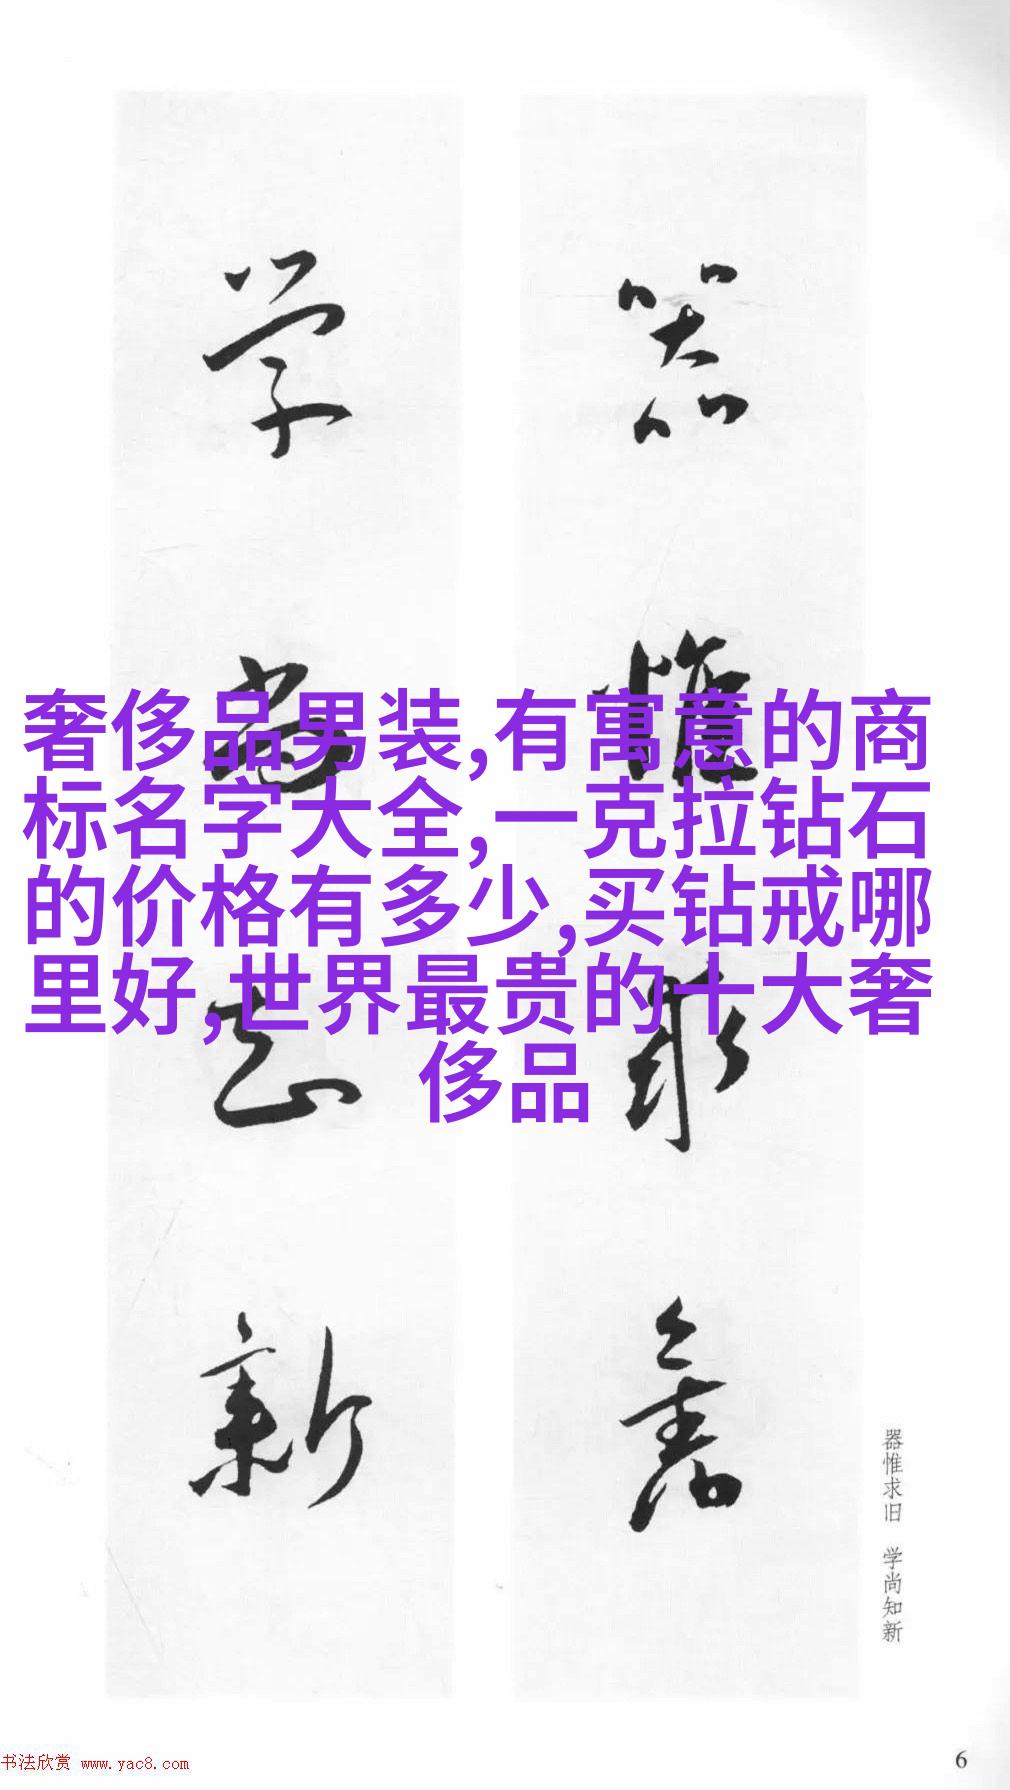 器惟求舊
学尚知新
奢侈品男装,有寓意的商
标名字大全,一克拉钻石
的价格有多少,买钻戒哪
里好,世界最贵的十大奢
侈品
器惟求旧 学尚知新
书法欣赏 www.yac8.com
6